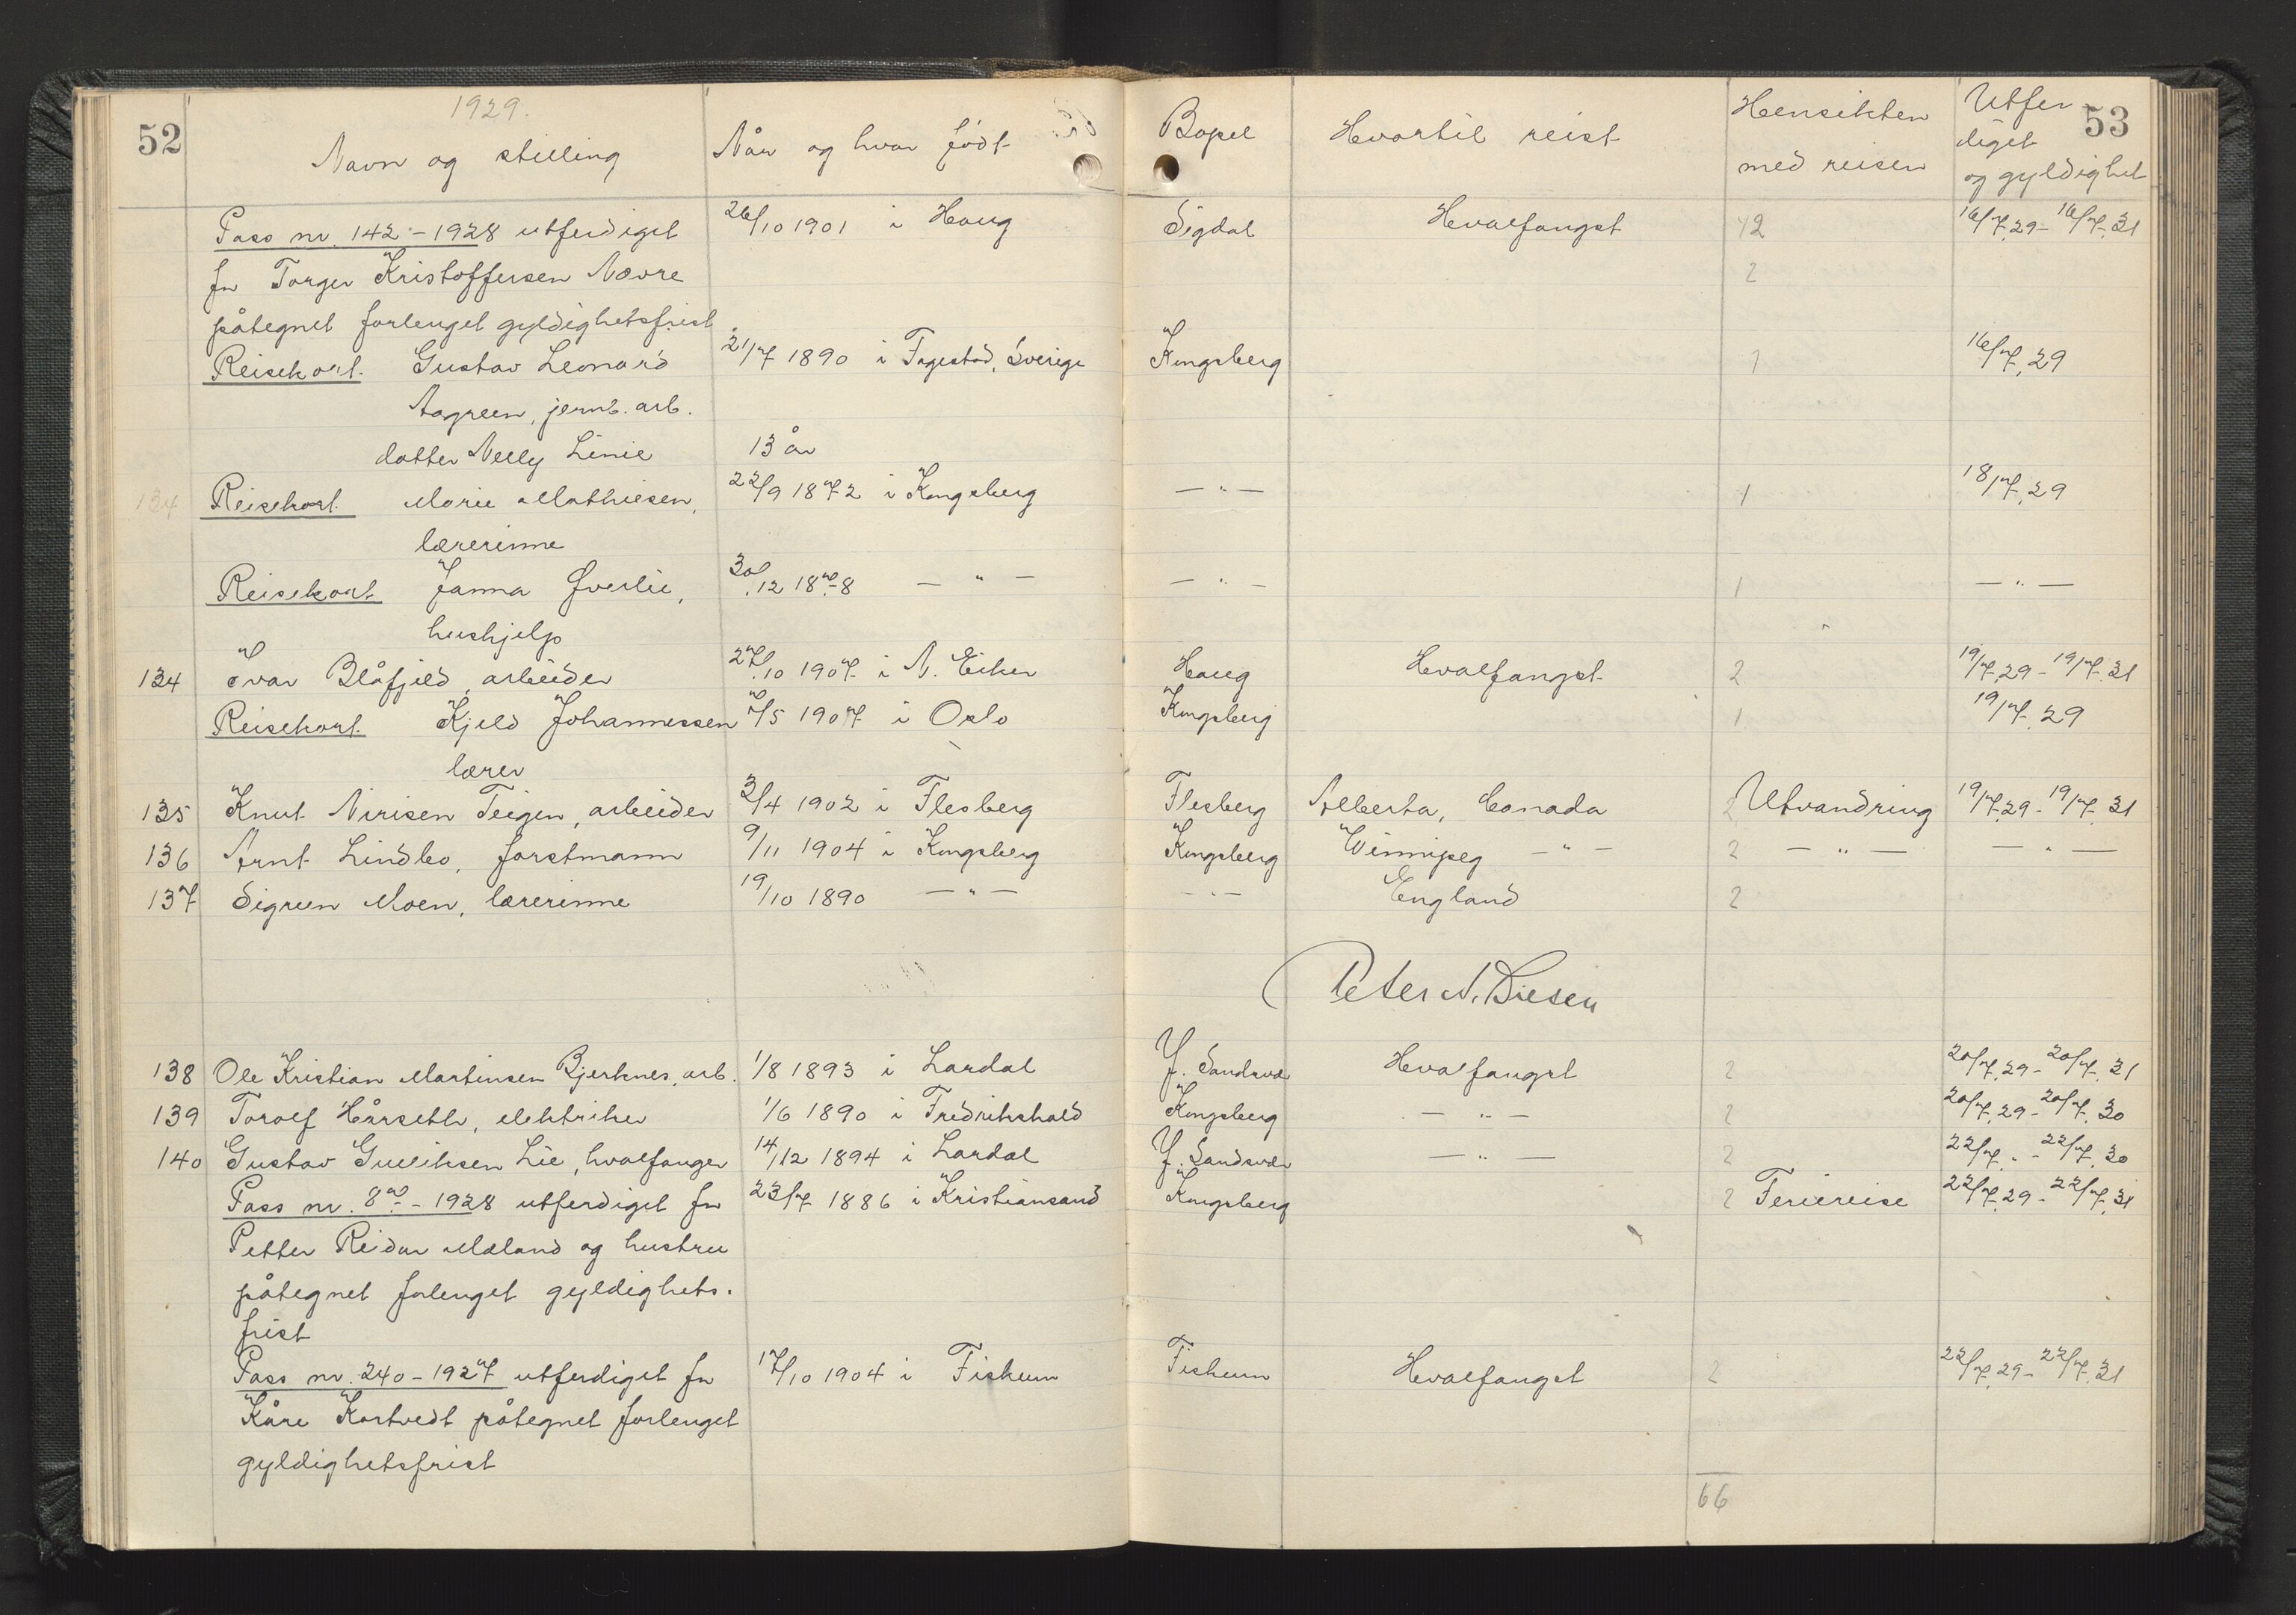 52
1929.
Navn og stilling
Når og hvor født
Bopel
Hvortil reist
Hensikten med reisen
Utferdiget og gyldighet
53
Pass nr. 142 - 1928 utferdiget 26/10 1901 i Haug Sigdal Hvalfangst 42 16/7.29 - 16/7.31
for Torger Kristoffersen Nævre 2
påtegnet forlenget gyldighetsfrist
Reisekort. Gustav Leonard 21/7 1890 i Togestad, Sverige Kongsberg 1 16/7.29
Aagreen, jernb. arb.
datter Nelly Linie 13 år
134 Reisekort. Marie Mathiesen, 22/9 1872 i Kongsberg — " — 1 18/7.29
lærerinne
Reisekort Janna Øverlie, 30/12 1878 — " — — " — 1 — " —
hushjelp
134 Ivar Blåfjeld, arbeider 27/10 1907 i N. Eiker Haug Hvalfangst 2 19/7.29 - 19/7.31
Reisekort. Kjeld Johannessen 7/5 1907 i Oslo Kongsberg 1 19/7.29
lærer
135 Knut Nirisen Teigen, arbeider 3/4 1902 i Flesberg Flesberg Alberta, Canada 2 Utvandring 19/7.29 - 19/7.31
136 Arnt Lindbo, forstmann 9/11 1904 i Kongsberg Kongsberg Winnipeg — " — 2 — " — — " —
137 Sigrun Moen, lærerinne 19/10 1890 — " — — " — England 2
Peter N. Diesen
138 Ole Kristian Martinsen Bjerknes, arb. 1/8 1893 i Lardal Y. Sandsvær Hvalfangst 2 20/7.29 - 20/7.31
139 Torolf Hårseth, elektriker 1/6 1890 i Fredrikshald Kongsberg — " — 2 20/7.29 - 20/7.30
140 Gustav Gulliksen Lie, hvalfanger 14/12 1894 i Lardal Y. Sandsvær — " — 2 22/7. " - 22/7.30
Pass nr. 87 - 1928 utferdiget for 23/7 1886 i Kristiansand Kongsberg 2 Feriereise 22/7.29 - 22/7.31
Petter Reidar Mæland og hustru
påtegnet forlenget gyldighets-
frist
Pass nr. 240 - 1927 utferdiget for 17/10 1904 i Fiskum Fiskum Hvalfangst 2 22/7.29 - 22/7.31
Kåre Kortvedt påtegnet forlenget
gyldighetsfrist
66